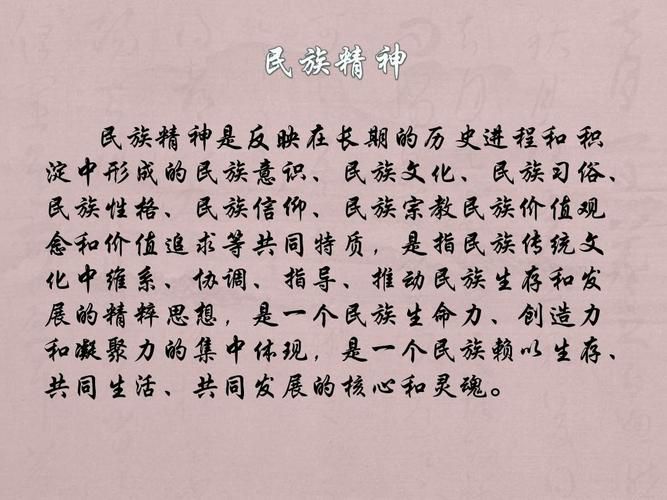 民族精神
民族精神是反映在长期的历史进程和积
淀中形成的民族意识、民族文化、民族习俗、
民族性格、民族信仰、民族宗教民族价值观
念和价值追求等共同特质，是指民族传统文
化中维系、协调、指导、推动民族生存和发
展的精粹思想，是一个民族生命力、创造力
和凝聚力的集中体现，是一个民族赖以生存、
共同生活、共同发展的核心和灵魂。